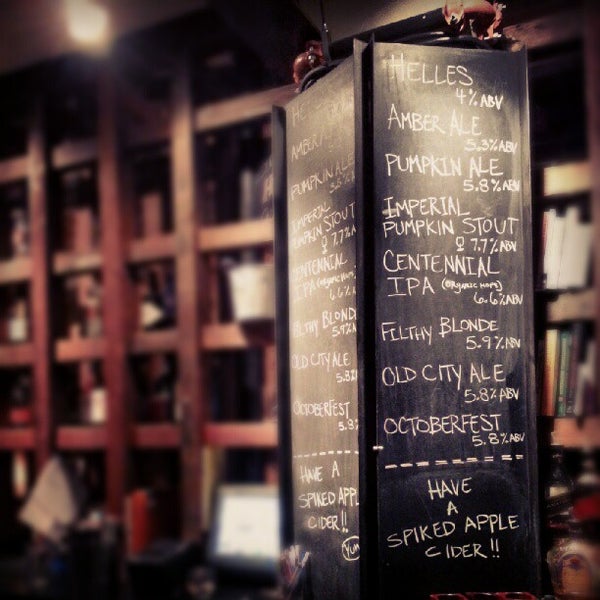 HELLES
4% ABV
AMBER ALE
5.3% ABV
PUMPKIN ALE
5.8% ABV
IMPERIAL
PUMPKIN STOUT
7.7% ABV
CENTENNIAL
IPA (ORGANIC HOPS)
6.6% ABV
FILTHY BLONDE
5.9% ABV
OLD CITY ALE
5.8% ABV
OCTOBERFEST
5.8% ABV
HAVE
A
SPIKED APPLE
CIDER!!
HE
AMBER ALE
PUMPKIN ALE
IMPERIAL
PUMPKIN STOUT
7.7%
CENTENNIAL
IPA (ORGANIC HOPS)
6.6%
FILTHY BLONDE
5.9%
OLD CITY ALE
5.8%
OCTOBERFEST
5.8
HAVE A
SPIKED APPL
CIDER!!
YUM